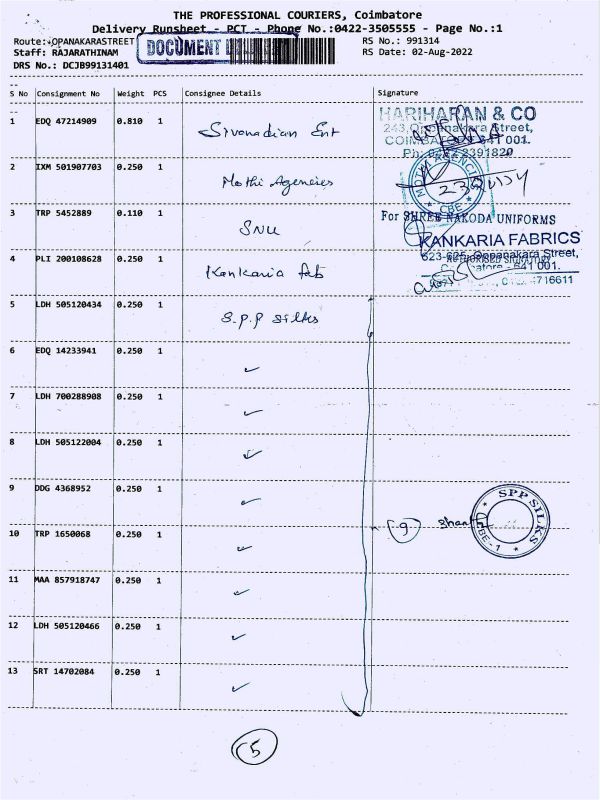 THE PROFESSIONAL COURIERS, Coimbatore
Delivery Runsheet - PCT - Phone No.:0422-3505555 - Page No.:1
Route: OPANAKARASTREET DOCUMENT RS No.: 991314
Staff: RAJARATHINAM RS Date: 02-Aug-2022
DRS No.: DCJB99131401
S No Consignment No Weight PCS Consignee Details Signature
1 EDQ 47214909 0.810 1 Sivanadian Ent
HARIHARAN & CO
243, Oppanakara Street,
COIMBATORE - 641 001.
Ph: 0422 2391820
2 IXM 501907703 0.250 1 Mothi Agencies
MOTHI AGENCIES
* CBE *
3 TRP 5452889 0.110 1 SNU
For SHREE NAKODA UNIFORMS
AUTHORISED SIGNATORY
4 PLI 200108628 0.250 1 Kankaria fab
KANKARIA FABRICS
623-625, Oppanakara Street,
Coimbatore - 641 001.
4716611
5 LDH 505120434 0.250 1 S.P.P silks
6 EDQ 14233941 0.250 1 ✓
7 LDH 700288908 0.250 1 ✓
8 LDH 505122004 0.250 1 ✓
9 DDG 4368952 0.250 1 ✓
(9)
SPP SILKS
* CBE-1 *
10 TRP 1650068 0.250 1 ✓
11 MAA 857918747 0.250 1 ✓
12 LDH 505120466 0.250 1 ✓
13 SRT 14702084 0.250 1 ✓
5